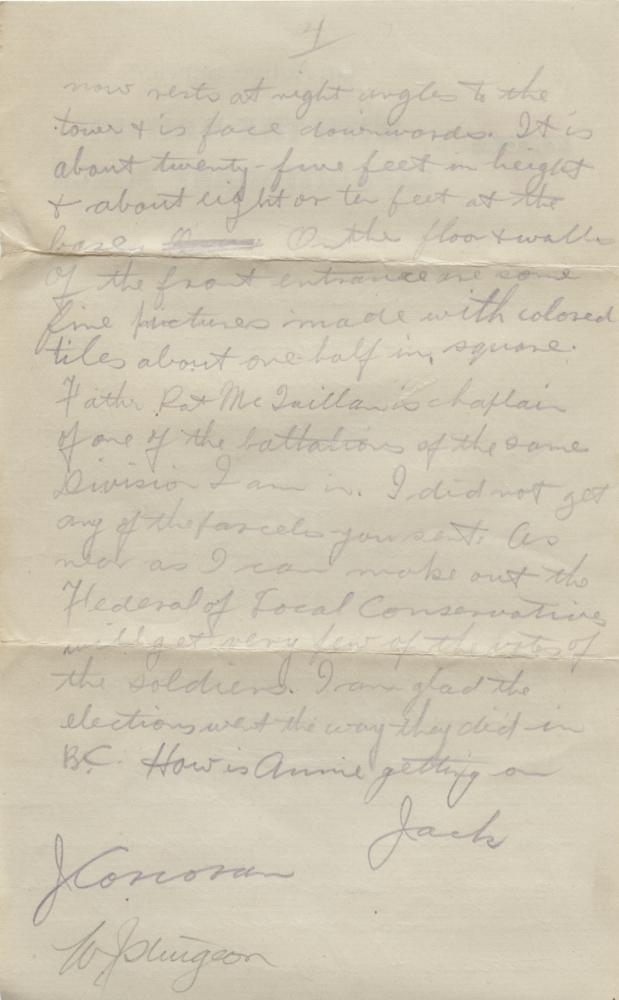 4
now rests at right angles to the
tower & is face downwards. It is
about twenty-five feet in height
& about eight or ten feet at the
base. On the floor & walls
of the front entrance are some
fine pictures made with colored
tiles about one half in. square.
Father Pat McQuillan is chaplain
of one of the battalions of the same
Division I am in. I did not get
any of the parcels you sent. As
near as I can make out the
Federal of Local Conservatives
will get very few of the votes of
the soldiers. I am glad the
elections went the way they did in
B.C. How is Annie getting on
Jack
J Corcoran